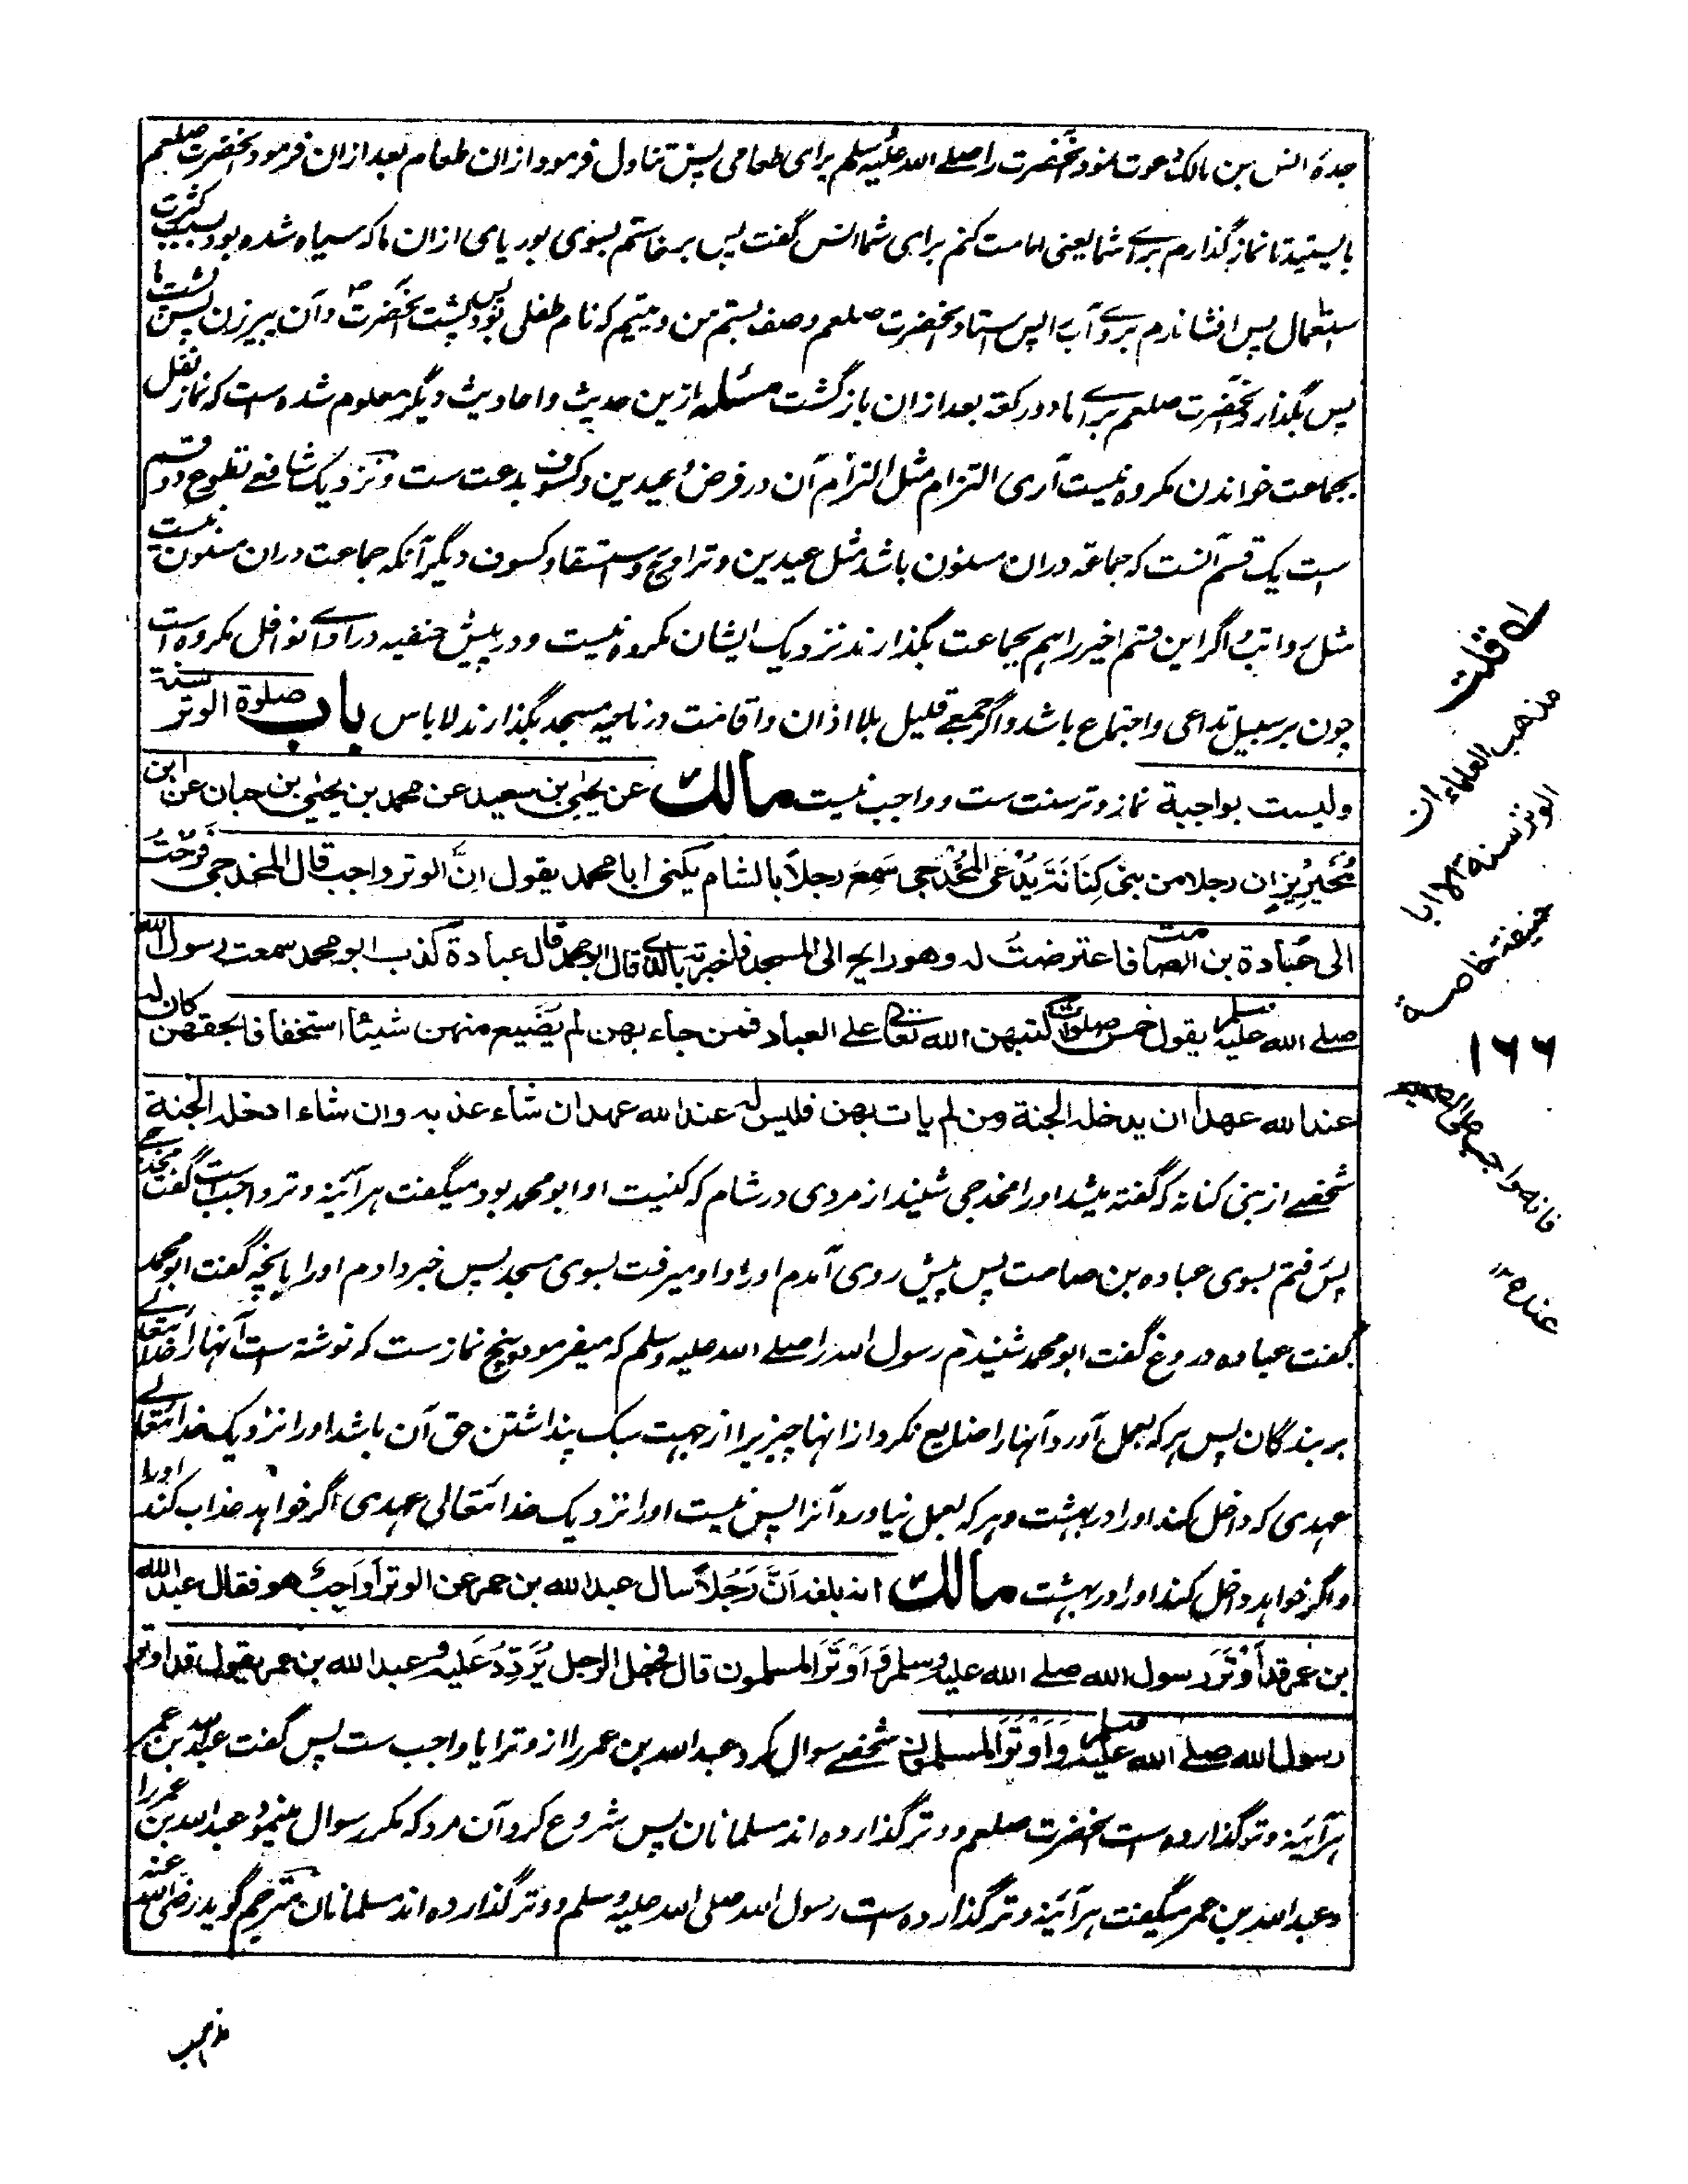 جده انس بن مالک دعوت نمود آنحضرت را صلے الله علیه وسلم برای طعامی پس تناول فرمود ازان طعام بعد ازان فرمود آنحضرت صلعم
بایستید تا نماز گذارم برے شما یعنی امامت کنم برای شما انس گفت پس برخاستم بسوی بوریای ازان ما که سیاه شده بود بسبب کثرت
استعمال پس افشاندم بروے آب را پس استاد آنحضرت صلعم وصف بستم من و یتیم که نام طفلی بود پس پشت آنحضرت ص وآن پیرزن پس پشت ما
پس بگذارد آنحضرت صلعم برے ما دو رکعة بعد ازان بازگشت مسئله ازین حدیث واحادیث دیگر معلوم شده است که نماز نفل
بجماعت خواندن مکروه نیست آری التزام مثل التزام آن در فرض و عیدین وکسوف بدعت ست ونزدیک شافعے تطوع دو قسم
است یک قسم آنست که جماعة دران مسنون باشد مثل عیدین وتراویح واستسقا وکسوف دیگر آنکه جماعت دران مسنون نیست
مثل رواتب و اگر این قسم اخیر را هم بجماعت بگذارند نزدیک ایشان مکروه نیست ودر پیش حنفیه دراداے نوافل مکروه است
چون برسبیل تداعی واجتماع باشد واگر جمعے قلیل بلا اذان واقامت در ناحیه مسجد بگذارند لا باس باب صلوة الوتر سنة
ولیست بواجبة نماز وتر سنت ست و واجب نیست مالک عن یحیی بن سعید عن محمد بن یحیی بن حبان عن ابن
مُحَیرِیزٍ ان رجلا من بنی کِنَانَةَ یُدْعَی المُخْدَجی سَمِعَ رجلاً بالشام یکنی ابا محمد یقول انَّ الوتر واجب قال المخدجی فَرُحْتُ
الی عُبَادة بن الصامت فاعترضتُ له وهو رایح الی المسجد فاخبرته بالذے قال ابو محمد قال عبادة کذب ابو محمد سمعت رسول الله
صلے الله علیه وسلم یقول خمس صلوات کتبهن الله تعالی علے العباد فمن جاء بهن لم یُضَیع منهن شیئا استخفافا بحقهن کان له
عند الله عهدا ان یدخله الجنة ومن لم یات بهن فلیس له عند الله عهد ان شاء عذبه وان شاء ادخله الجنة
شخصے از بنی کنانه که گفته میشد او را مخدجی شنید از مردی در شام که کنیت او ابو محمد بود میگفت هرآئینه وتر واجب است گفت مخدجے
پس رفتم بسوی عباده بن صامت پس پیش روی آمدم او را و او میرفت بسوی مسجد پس خبر دادم او را بانچه گفت ابو محمد
گفت عباده دروغ گفت ابو محمد شنیدم رسول الله را صلے الله علیه وسلم که میفرمود پنج نماز ست که نوشته است آنها را خدا تعالے
بر بندگان پس هرکه بعمل آورد آنها را ضایع نکرد از انها چیزیرا از جهت سبک پنداشتن حق آن باشد او را نزدیک خدا تعالے
عهدی که داخل کند او را در بهشت وهرکه بعمل نیاورد آنرا پس نیست او را نزدیک خدا تعالی عهدی اگر خواهد عذاب کند او را
واگر خواهد داخل کند او را در بهشت مالک انه بلغه اَنَّ رَجُلاً سال عبد الله بن عمر عن الوتر أَوَاجِبٌ هو فقال عبد الله
بن عمر قد أَوْتَرَ رسول الله صلے الله علیه وسلم وَأَوْتَرَ المسلمون قال فجعل الرجل یُرَدِّدُ عَلَیه وعبد الله بن عمر یقول قد اوتر
رسول الله صلے الله علیه وسلم وَأَوْتَرَ المسلمون شخصے سوال کرد عبد الله بن عمر را از وتر ایا واجب ست پس گفت عبد الله بن عمر
هرآئینه وتر گذارده است آنحضرت صلعم و وتر گذارده اند مسلمانان پس شروع کرد آن مرد که مکرر سوال مینمود عبد الله بن عمر را
وعبد الله بن عمر میگفت هرآئینه وتر گذارده است رسول الله صلی الله علیه وسلم و وتر گذارده اند مسلمانان مترجم گوید رضی الله عنه
قلت
مذهب العلماء ان
الوتر سنة الا ابا
حنیفة خاصة
۱۶۶
فانه واجب علی
عنده ۱۲
مذهب